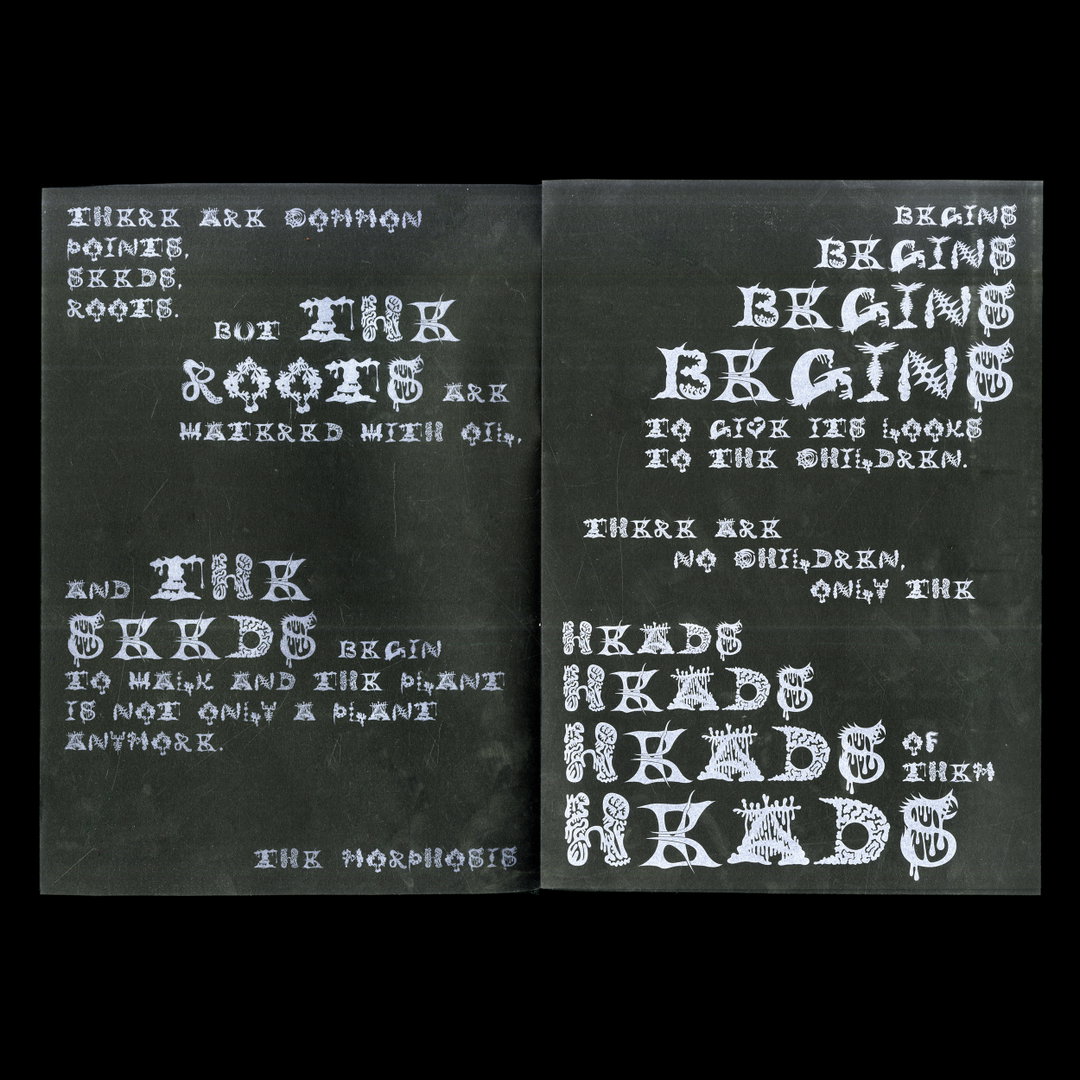 THERE ARE COMMON
POINTS,
SEEDS,
ROOTS.
BUT THE
ROOTS ARE
WATERED WITH OIL,
AND THE
SEEDS BEGIN
TO WALK AND THE PLANT
IS NOT ONLY A PLANT
ANYMORE.
THE MORPHOSIS
BEGINS
BEGINS
BEGINS
BEGINS
TO GIVE ITS LOOKS
TO THE CHILDREN.
THERE ARE
NO CHILDREN,
ONLY THE
HEADS
HEADS
HEADS OF
THEM
HEADS